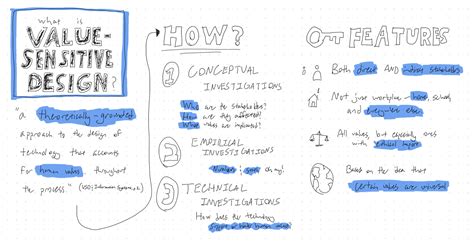 what is
VALUE-
SENSITIVE
DESIGN?
"a theoretically-grounded
approach to the design of
technology that accounts
for human values throughout
the process."
HOW?
1 CONCEPTUAL
INVESTIGATIONS
Who are the stakeholders?
How are they affected?
What values are implicated?
2 EMPIRICAL
INVESTIGATIONS
Numbers & such oh my!
3 TECHNICAL
INVESTIGATIONS
How does the technology
support or hinder human values
KEY FEATURES
Both direct AND indirect stakeholders
Not just workplace - home, school,
and everywhere else
All values, but especially ones
with ethical import
Based on the idea that
certain values are universal